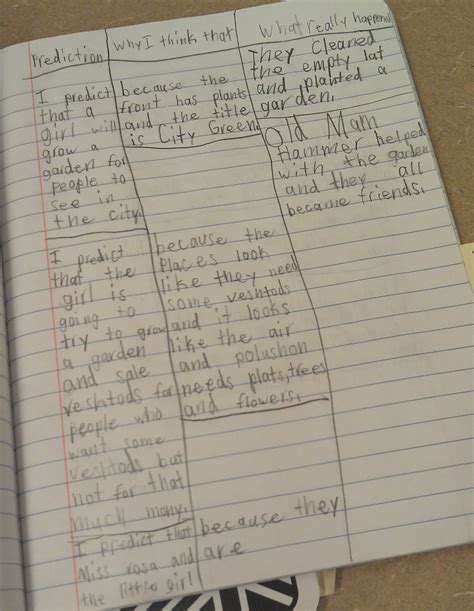 Prediction
Why I think that
What really happened
I predict
that a
girl will
grow a
garden for
people to
see in
the city.
because the
front has plants
and the title
is City Green.
They Cleaned
the empty lat
and planted a
garden.
Old Mam
Hammer helped
with the garden
and they all
became friends.
I predict
that the
girl is
going to
try to grow
a garden
and sale
veshtods for
people who
want some
veshtods but
not for that
much mony.
because the
Places look
like they need
some veshtods
and it looks
like the air
and polushon
needs plats, trees
and flowers.
I predict that
Miss rosa and
the little girl
because they
are